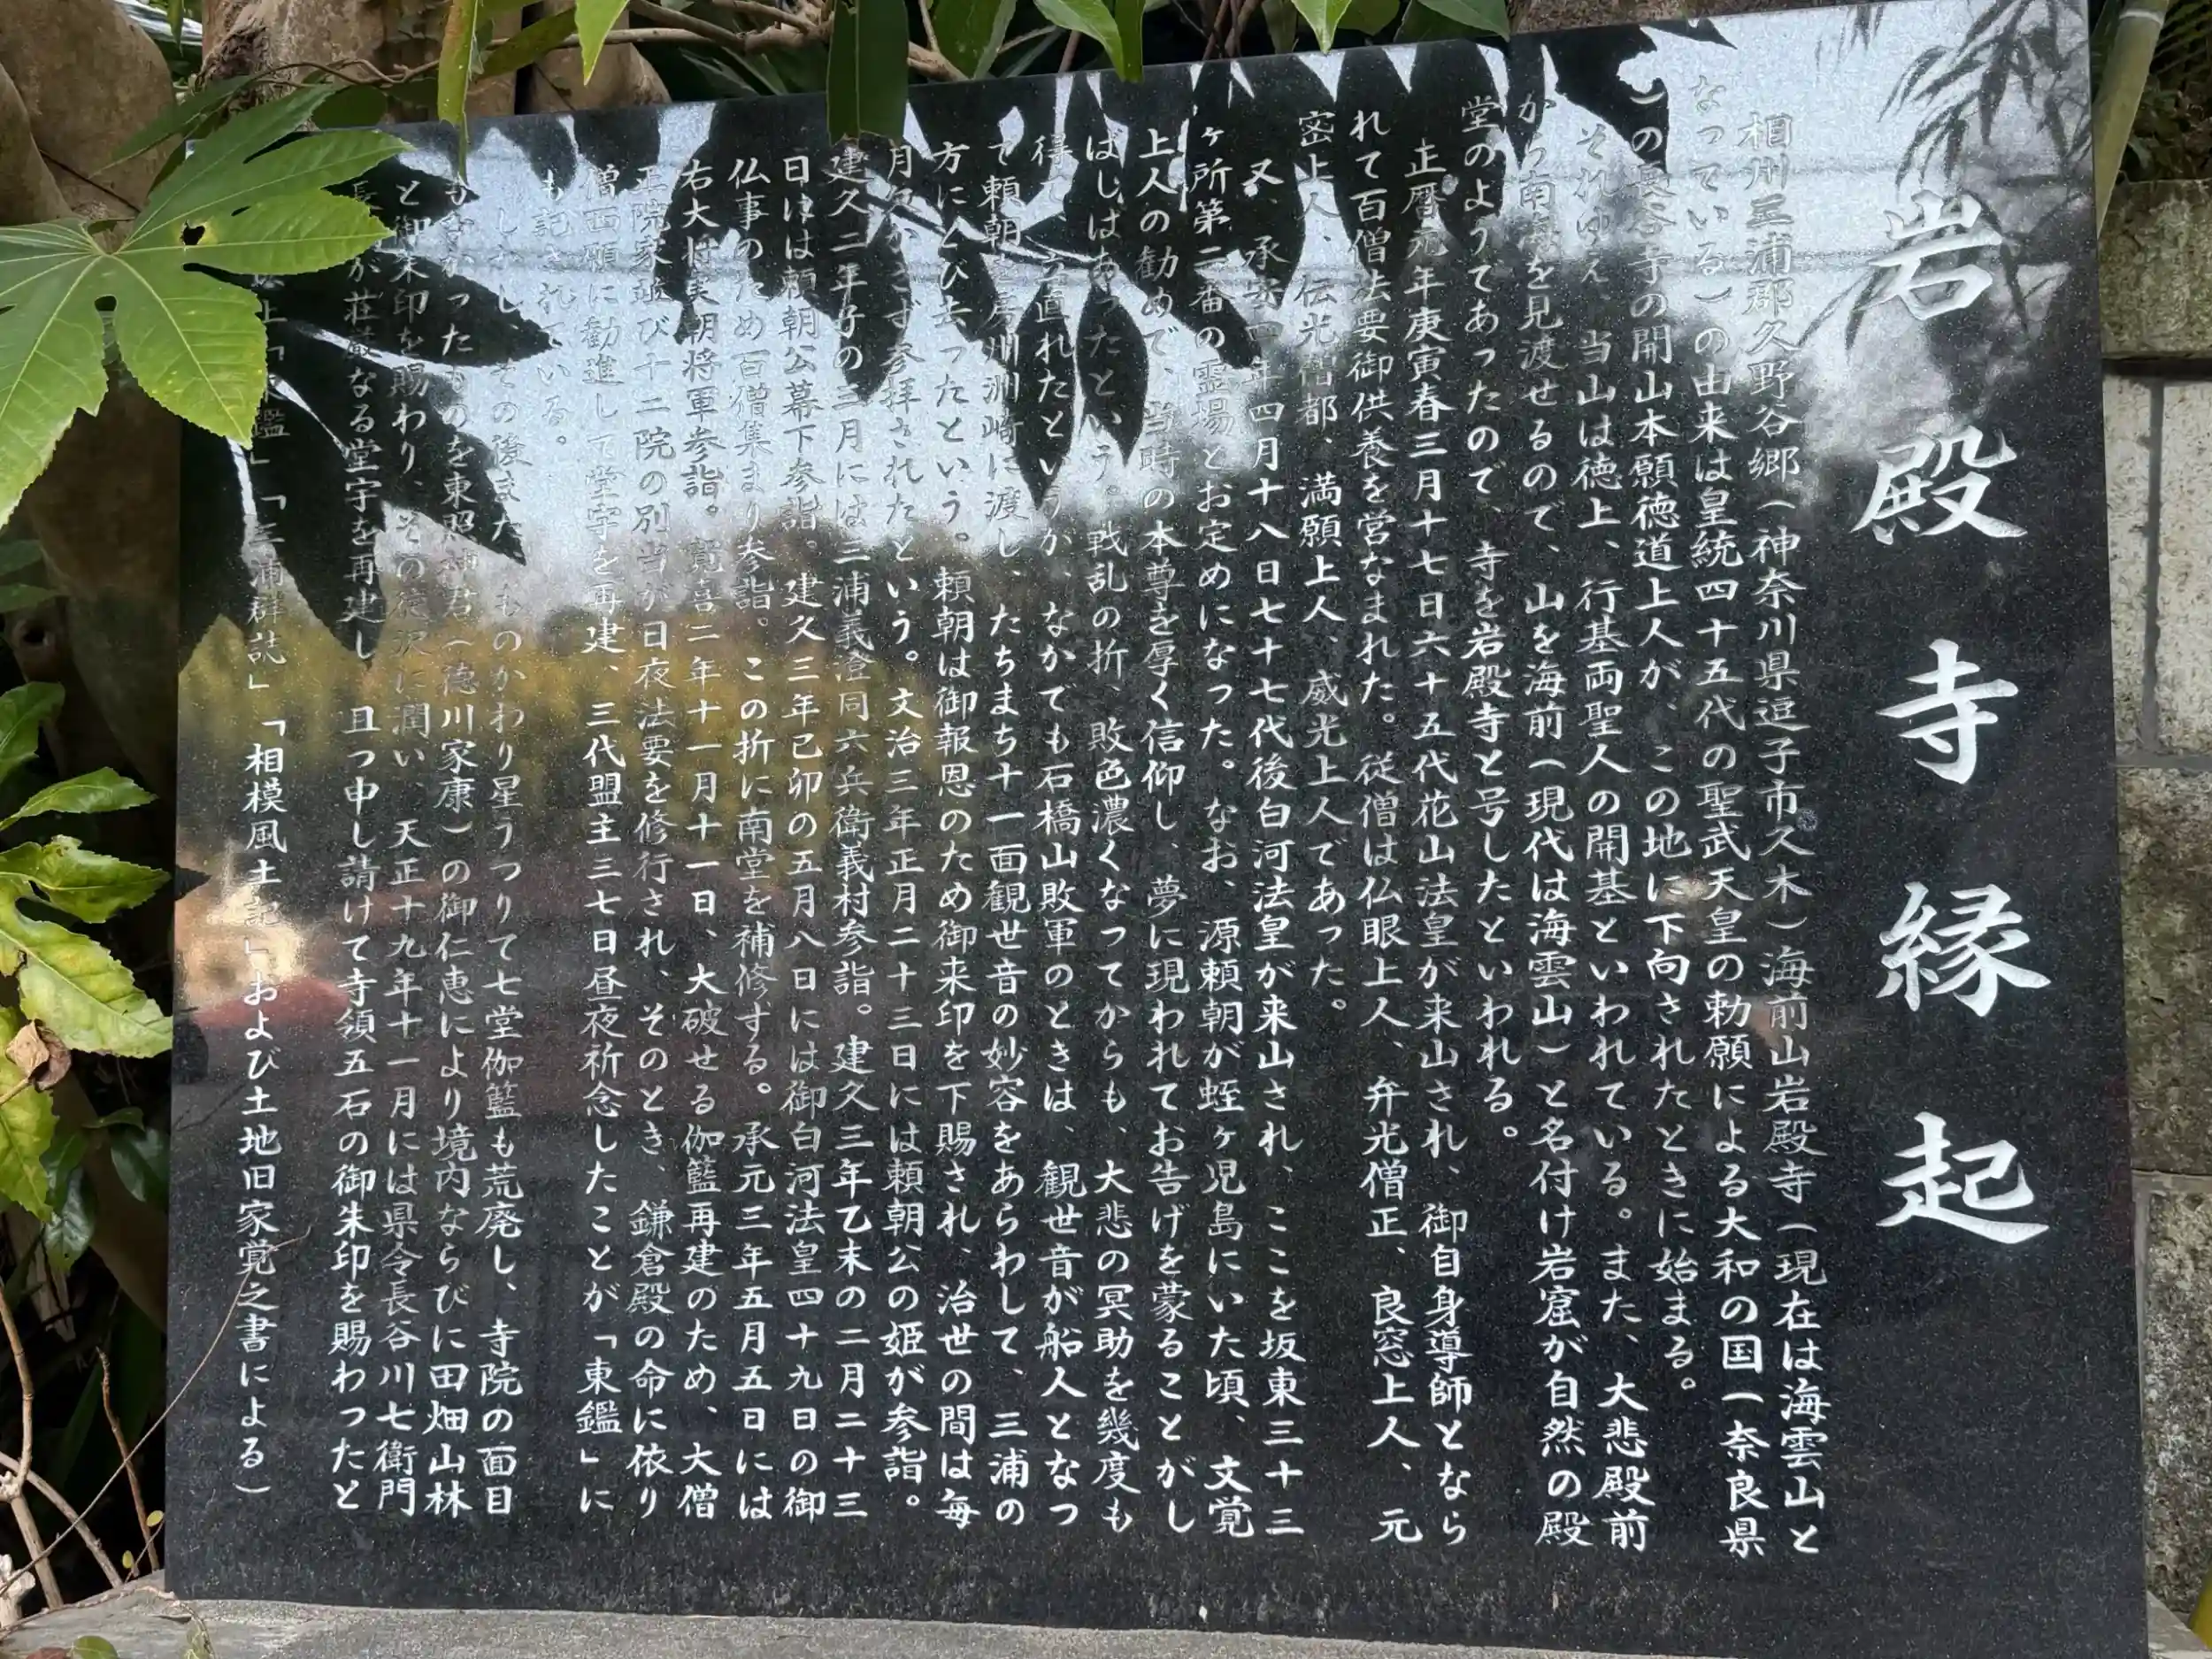 岩殿寺縁起
相州三浦郡久野谷郷(神奈川県逗子市久木)海前山岩殿寺(現在は海雲山と
なっている)の由来は皇統四十五代の聖武天皇の勅願による大和の国(奈良県
)の長谷寺の開山本願徳道上人が、この地に下向されたときに始まる。
それゆえ、当山は徳上、行基両聖人の開基といわれている。また、大悲殿前
から南海を見渡せるので、山を海前(現代は海雲山)と名付け岩窟が自然の殿
堂のようてあったので、寺を岩殿寺と号したといわれる。
正暦元年庚寅春三月十七日六十五代花山法皇が来山され、御自身導師となら
れて百僧法要御供養を営なまれた。従僧は仏眼上人、弁光僧正、良窓上人、元
密上人、伝光僧都、満願上人、威光上人であった。
又、承安四年四月十八日七十七代後白河法皇が来山され、ここを坂東三十三
ヶ所第二番の霊場とお定めになった。なお、源頼朝が蛭ヶ児島にいた頃、文覚
上人の勧めで、当時の本尊を厚く信仰し、夢に現われてお告げを蒙ることがし
ばしばあったという。戦乱の折、敗色濃くなってからも、大悲の冥助を幾度も
得て、立直れたというが、なかでも石橋山敗軍のときは、観世音が船人となつ
て頼朝を房州洲崎に渡し、たちまち十一面観世音の妙容をあらわして、三浦の
方にとび去ったという。頼朝は御報恩のため御来印を下賜され、治世の間は毎
月欠かさず参拝されたという。文治三年正月二十三日には頼朝公の姫が参詣。
建久二年子の三月には三浦義澄同六兵衛義村参詣。建久三年乙末の二月二十三
日には頼朝公幕下参詣。建久三年已卯の五月八日には御白河法皇四十九日の御
仏事のため百僧集まり参詣。この折に南堂を補修する。承元三年五月五日には
右大将実朝将軍参詣。寛喜二年十一月十一日、大破せる伽藍再建のため、大僧
正院家並び十二院の別当が日夜法要を修行され、そのとき、鎌倉殿の命に依り
僧西願に勧進して堂宇を再建、三代盟主三七日昼夜祈念したことが「東鑑」に
も記されている。
しかし、その後また、ものかわり星うつりて七堂伽籃も荒廃し、寺院の面目
もなかったものを東照神君(徳川家康)の御仁恵により境内ならびに田畑山林
と御朱印を賜わり、その徳沢に潤い、天正十九年十一月には県令長谷川七衛門
長が荘厳なる堂宇を再建し 且つ申し請けて寺領五石の御朱印を賜わったと
「東鑑」「三浦群誌」「相模風土記」および土地旧家覚之書による)